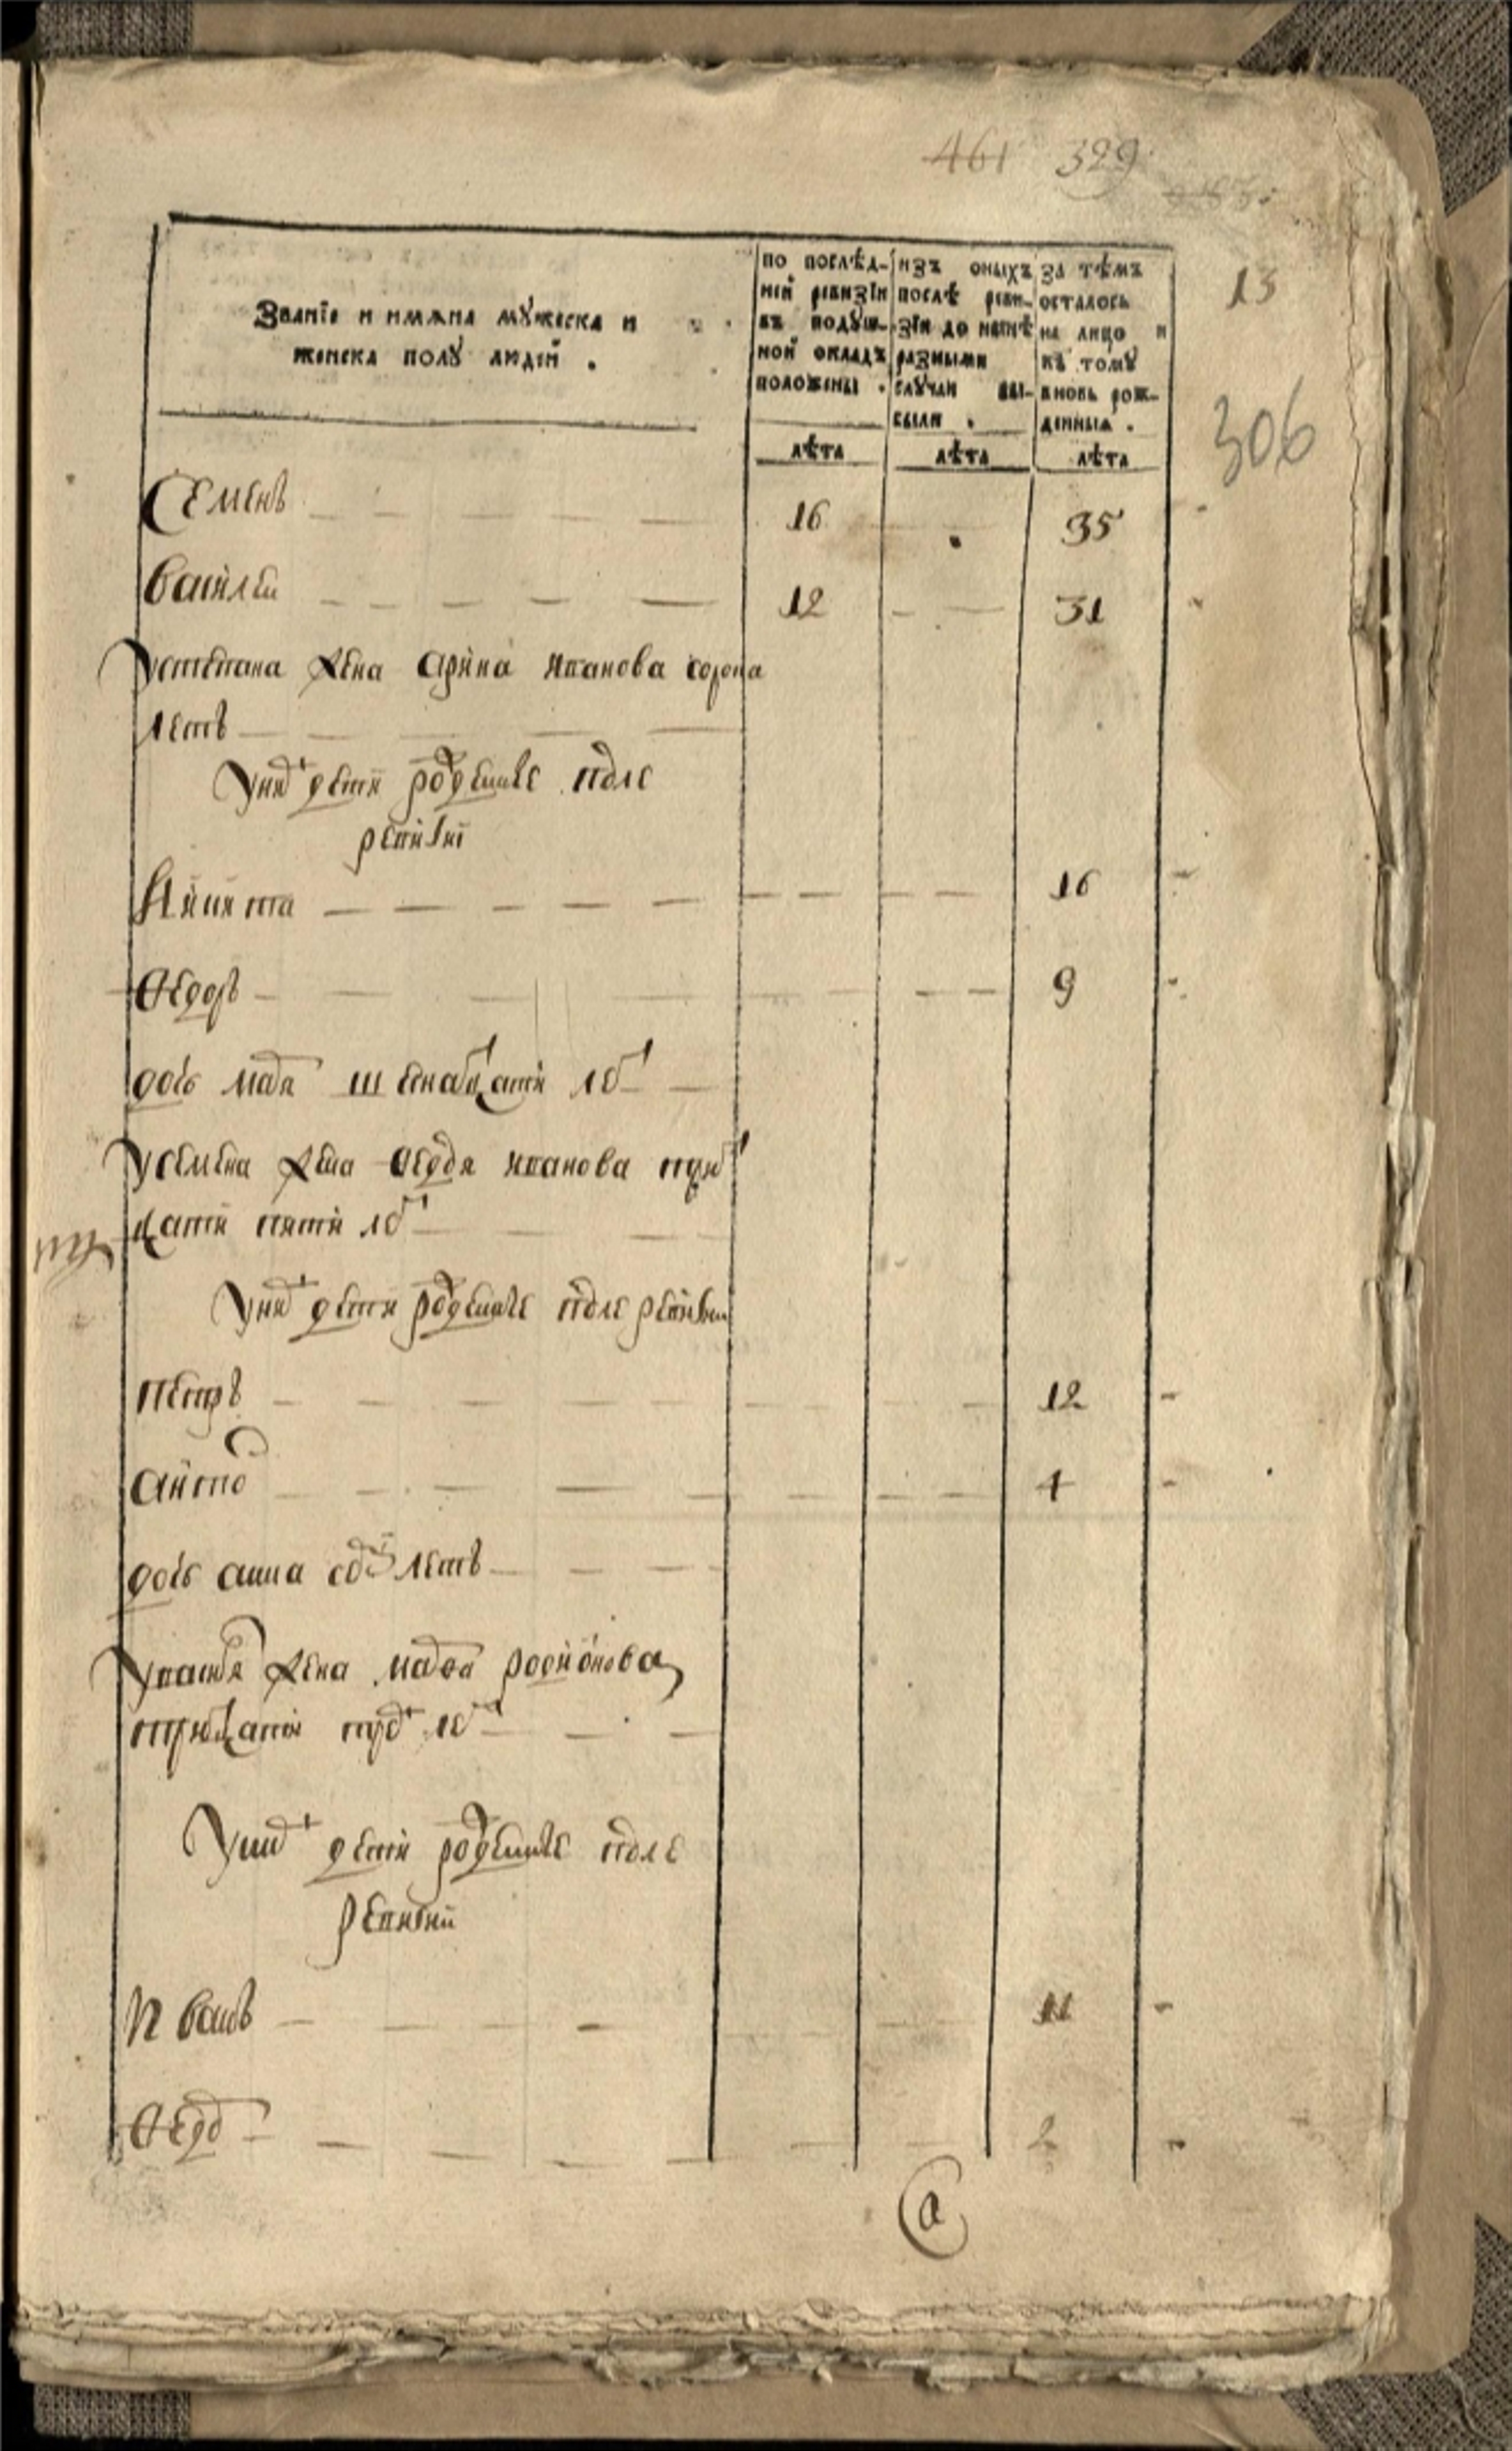 461 329
13
306
Званїе и имѧна мꙋжеска и
женска полꙋ людей .
по послѣд-
ней ревизїи
въ подꙋш-
ной окладъ
положены .
лѣта
изъ оныхъ
послѣ реви-
зїи до нынѣ
разными
слꙋчаи вы-
были .
лѣта
За тѣмъ
осталось
на лицо и
къ томꙋ
вновь рож-
денныѧ .
лѣта
Семенъ 16 35
Василеи 12 31
устепана жена арина иванова сорока
летъ
Уних дети родившїе после
ревизиї
Никита 16
Ѳедоръ 9
дочь марья шеснатцати лет
усемена жена Ѳедосья иванова трит
цати пяти лет
Уних дети родившїе после ревизии
Петръ 12
4
дочь анна семи летъ
жена иванова родионова
тритцати трех лет
Уних дети родившїе после
ревизии
Иванъ 11
Ѳедор 2
а